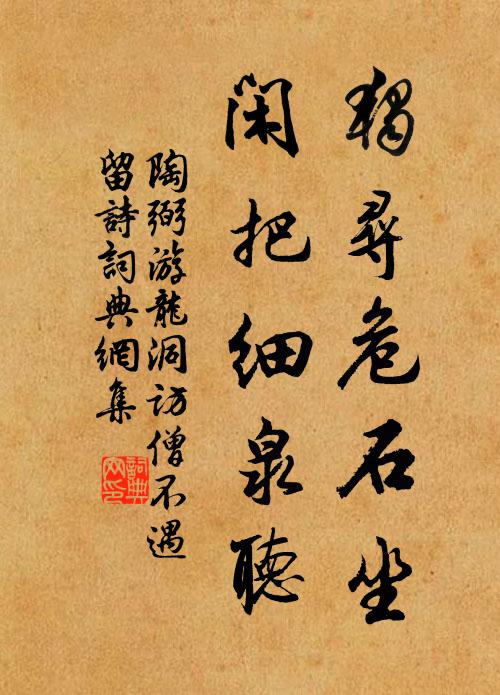 獨尋危石坐
閑把細泉聽
陶弼游龍洞訪僧不遇
留詩詞典網集
詞典
网印